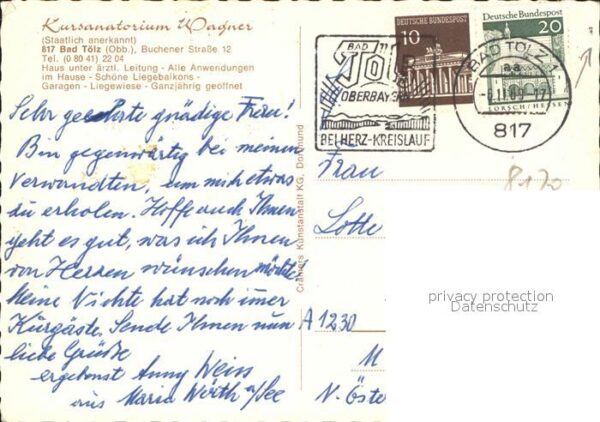 Kursanatorium Wagner
(Staatlich anerkannt)
817 Bad Tölz (Obb.), Buchener Straße 12
Tel. (0 80 41) 22 04
Haus unter ärztl. Leitung - Alle Anwendungen
im Hause - Schöne Liegebalkons -
Garagen - Liegewiese - Ganzjährig geöffnet
Sehr geehrte gnädige Frau!
Bin gegenwärtig bei meinen
Verwandten, um mich etwas
zu erholen. Hoffe auch Ihnen
geht es gut, was ich Ihnen
von Herzen wünschen möchte.
Meine Nichte hat noch imer
Kurgäste. Sende Ihnen nun
liebe Grüße
ergebenst Anny Weiss
aus Maria Wörth a/See
Cramers Kunstanstalt KG, Dortmund
DEUTSCHE BUNDESPOST
10
Deutsche Bundespost
20
LORSCH/HESSEN
BAD
TÖLZ
OBERBAYERN
BEI HERZ-KREISLAUF
BAD TÖLZ 1
aa
817
Frau
8170
Lotte
privacy protection
Datenschutz
A 1230
N. Öster